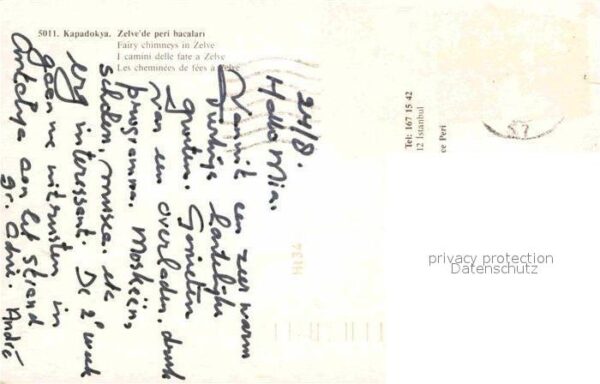 5011. Kapadokya. Zelve'de peri bacaları
Fairy chimneys in Zelve
I camini delle fate a Zelve
Les cheminées de fées à Zelve
24/8.
Hallo Mia.
Vanuit een zeer warm
Turkije hartelijke
groeten. Genieten
van een overladen, druk
programma. Moskeën,
musea. etc
erg interessant. De 2e week
gaan we uitrusten in
Antalya aan het strand
gr. André
Tel: 167 15 42
12 İstanbul
ce Peri
H134
privacy protection
Datenschutz